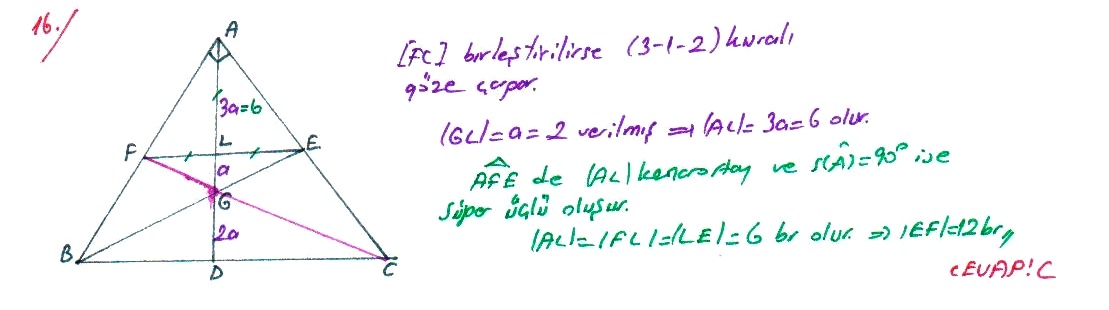 16./
A
3a=6
L
F
E
a
G
2a
B
D
C
[FC] birleştirilirse (3-1-2) kuralı
göze çarpar.
|GL|=a=2 verilmiş ⇒ |AL|= 3a=6 olur.
AFE de |AL| kenarortay ve s(Â)=90° ise
Süper üçlü oluşur.
|AL|=|FL|=|LE|=6 br olur. ⇒ |EF|=12br//
CEVAP: C